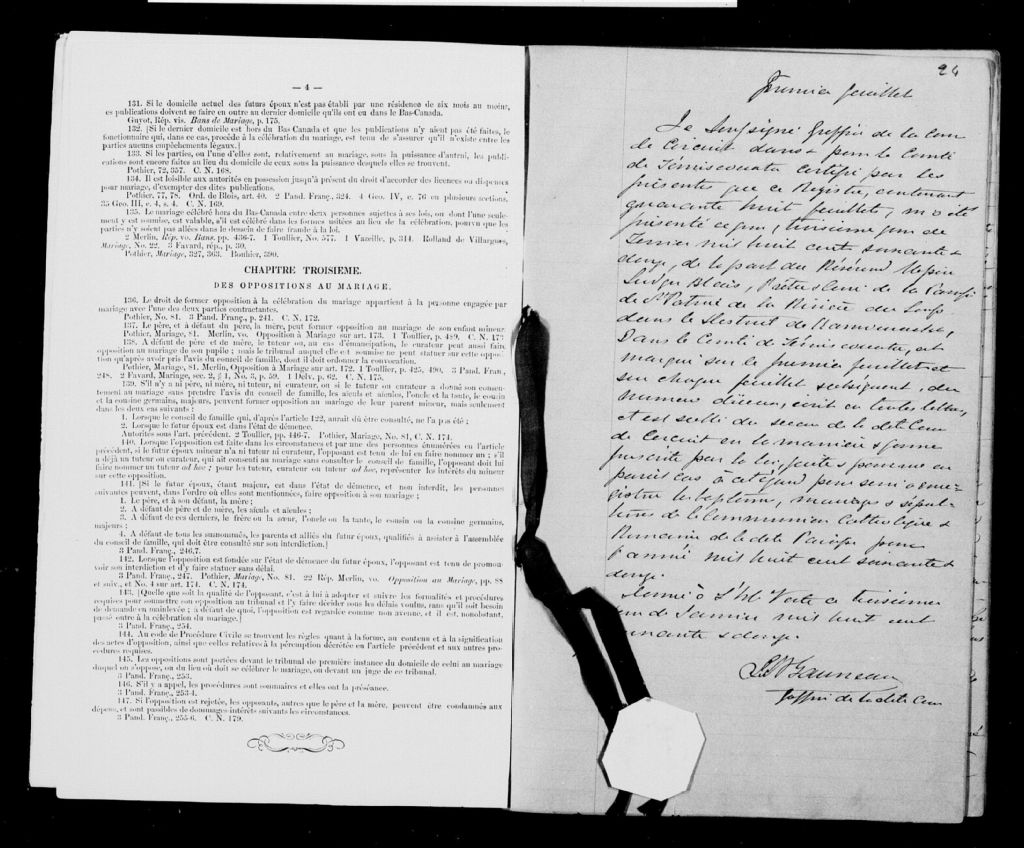 — 4 —
131. Si le domicile actuel des futurs époux n'est pas établi par une résidence de six mois au moins,
ces publications doivent se faire en outre au dernier domicile qu'ils ont eu dans le Bas-Canada.
Guyot, Rép. vis. Bans de Mariage, p. 175.
132. [Si le dernier domicile est hors du Bas Canada et que les publications n'y aient pas été faites, le
fonctionnaire qui, dans ce cas, procède à la célébration du mariage, est tenu de s'assurer qu'il n'existe entre les
parties aucuns empêchements légaux.]
133. Si les parties, ou l'une d'elles, sont, relativement au mariage, sous la puissance d'autrui, les publi-
cations sont encore faites au lieu du domicile de ceux sous la puissance desquels elles se trouvent.
Pothier, 72, 357. C. N. 168.
134. Il est loisible aux autorités en possession jusqu'à présent du droit d'accorder des licences ou dispenses
pour mariage, d'exempter des dites publications.
Pothier, 77, 78. Ord. de Blois, art. 40. 2 Pand. Franç., 324. 4 Geo. IV, c. 76 en plusieurs sections,
35 Geo. III, c. 4, s. 4. C. N. 169.
135. Le mariage célébré hors du Bas-Canada entre deux personnes sujettes à ses lois, ou dont l'une seule-
ment y est soumise, est valable, s'il est célébré dans les formes usitées au lieu de la célébration, pourvu que les
parties n'y soient pas allées dans le dessein de faire fraude à la loi.
2 Merlin, Rép. vo. Bans, pp. 436-7. 1 Toullier, No. 577. 1 Vazeille, p. 314. Rolland de Villargues,
Mariage, No. 22. 3 Favard, rép., p. 39.
Pothier, Mariage, 327, 363. Bouhier, 390.
CHAPITRE TROISIEME.
DES OPPOSITIONS AU MARIAGE.
136. Le droit de former opposition à la célébration du mariage appartient à la personne engagée par
mariage avec l'une des deux parties contractantes.
Pothier, No. 81. 3 Pand. Franç., p. 241. C. N. 172.
137. Le père, et à défaut du père, la mère, peut former opposition au mariage de son enfant mineur.
Pothier, Mariage, 81. Merlin, vo. Opposition à Mariage sur art. 173. 1 Toullier, p. 489. C. N. 173
138. A défaut de père et de mère, le tuteur ou, au cas d'émancipation, le curateur peut aussi faire
opposition au mariage de son pupille ; mais le tribunal auquel elle est soumise ne peut statuer sur cette oppo-
tion qu'après avoir pris l'avis du conseil de famille, dont il doit ordonner la convocation.
Pothier, Mariage, 81. Merlin, Opposition à Mariage sur art. 172. 1 Toullier, p. 425, 490. 3 Pand. Fran.,
248. 2 Favard, Mariage, sec. 2, § 1, No. 3, p. 59. 1 Delv. p. 62. C. N. 175.
139. S'il n'y a ni père, ni mère, ni tuteur, ni curateur, ou si le tuteur ou curateur a donné son consen-
tement au mariage sans prendre l'avis du conseil de famille, les aïeuls et aïeules, l'oncle et la tante, le cousin
et la cousine germains, majeurs, peuvent former opposition au mariage de leur parent mineur, mais seulement
dans les deux cas suivants :
1. Lorsque le conseil de famille qui, d'après l'article 122, aurait dû être consulté, ne l'a pas été ;
2. Lorsque le futur époux est dans l'état de démence.
Autorités sous l'art. précédent. 2 Toullier, pp. 446-7. Pothier, Mariage, No. 81, C. N. 174.
140. Lorsque l'opposition est faite dans les circonstances et par une des personnes énumérées en l'article
précédent, si le futur époux mineur n'a ni tuteur ni curateur, l'opposant est tenu de lui en faire nommer un ; s'il
a déjà un tuteur ou curateur, qui ait consenti au mariage sans consulter le conseil de famille, l'opposant doit lui
faire nommer un tuteur ad hoc ; pour les tuteur, curateur ou tuteur ad hoc, représenter les intérêts du mineur
sur cette opposition.
141. [Si le futur époux, étant majeur, est dans l'état de démence, et non interdit, les personnes
suivantes peuvent, dans l'ordre où elles sont mentionnées, faire opposition à son mariage ;
1. Le père, et à son défaut, la mère ;
2. A défaut de père et de mère, les aïeuls et aïeules ;
3. A défaut de ces derniers, le frère ou la sœur, l'oncle ou la tante, le cousin ou la cousine germains,
majeurs ;
4. A défaut de tous les susnommés, les parents et alliés du futur époux, qualifiés à assister à l'assemblée
du conseil de famille, qui doit être consulté sur son interdiction.]
3 Pand. Franç., 246.7.
142. Lorsque l'opposition est fondée sur l'état de démence du futur époux, l'opposant est tenu de promou-
voir son interdiction et d'y faire statuer sans délai.
3 Pand. Franç., 247. Pothier, Mariage, No. 81. 22 Rép. Merlin, vo. Opposition au Mariage, pp. 88
et suiv., et No. 4 sur art. 174. C. N. 174.
143. [Quelle que soit la qualité de l'opposant, c'est à lui à adopter et suivre les formalités et procédures
requises pour soumettre son opposition au tribunal et l'y faire décider sous les délais voulus, sans qu'il soit besoin
de demande en mainlevée ; à défaut de quoi, l'opposition est regardée comme non avenue, et il est, nonobstant,
passé outre à la célébration du mariage.]
3 Pand. Franç., 254.
144. Au code de Procédure Civile se trouvent les règles quant à la forme, au contenu et à la signification
des actes d'opposition, ainsi que celles relatives à la péremption décrétée en l'article précédent et aux autres pro-
cédures requises.
145. Les oppositions sont portées devant le tribunal de première instance du domicile de celui au mariage
duquel on s'oppose, ou du lieu où doit se célébrer le mariage, ou devant un juge de ce tribunal.
3 Pand. Franç., 253.
146. S'il y a appel, les procédures sont sommaires et elles ont la préséance.
3 Pand. Franç., 253-4.
147. Si l'opposition est rejetée, les opposants, autres que le père et la mère, peuvent être condamnés aux
dépens, et sont passibles de dommages-intérêts suivants les circonstances.
3 Pand. Franç., 255-6. C. N. 179.
Premier feuillet
Je Soussigné Greffier de la Cour
de Circuit dans & pour le Comté
de Témiscouata certifie par les
présentes que ce Registre, contenant
quarante huit feuillets, m'a été
présenté ce jour, troisieme jour de
Janvier mil huit cent soixante &
douze, de la part du Révérend Messire
Blais, Prêtre & Curé de la Paroisse
de St Patrice de la Rivière du Loup
dans le District de Kamouraska,
Dans le Comté de Témiscouata, est
marqué sur le premier feuillet et
sur chaque feuillet subséquent, du
numero d'iceux, écrit en toutes lettres,
et est scellé du sceau de la dite Cour
de Circuit en la manière & forme
prescrite par la loi, faite & pourvue en
pareil cas à cet égard pour servir à enre-
gistrer les baptêmes, mariages & sépul-
tures de la Communion Catholique &
Romaine de la dite Paroisse pour
l'année mil huit cent soixante &
douze.
Donné à L'Isle Verte ce troisieme
jour de Janvier mil huit cent
soixante & douze.
Gauvreau
Greffier de la dite Cour